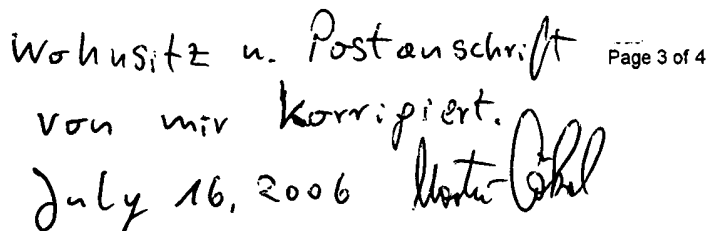 Wohnsitz u. Postanschrift Page 3 of 4
von mir korrigiert.
July 16, 2006